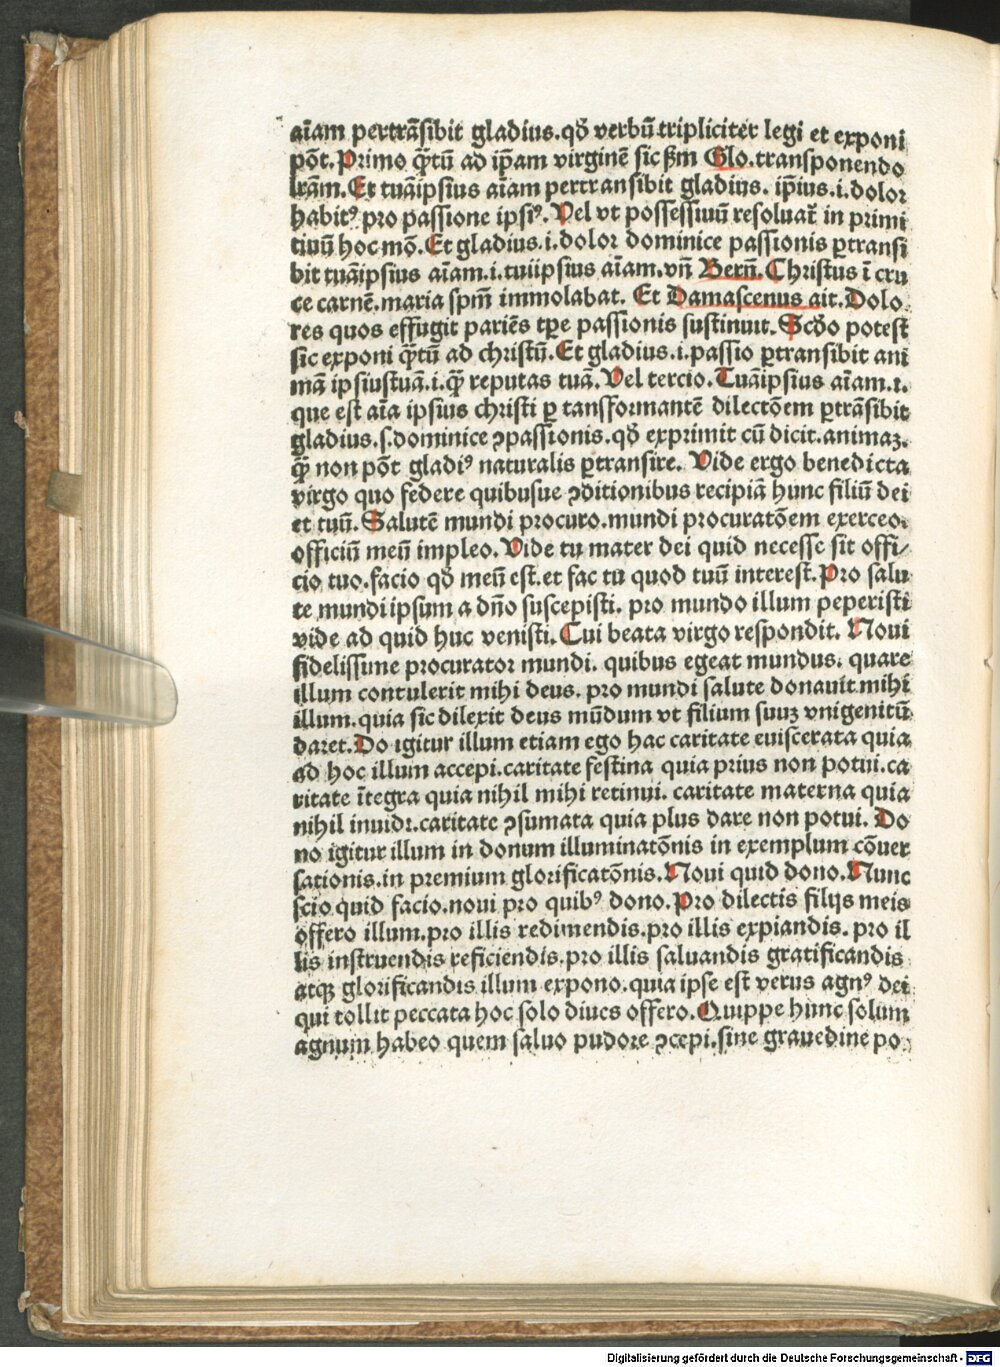 aīam pertrāsibit gladius.qð verbū tripliciter legi et exponi
põt.Primo q̄tū ad ip̄am virginē sic ẜm Glo.transponendo
lrām.Et tuāipsius aīam pertransibit gladius. ip̄ius.i.dolor
habitꝰ pro passione ipsiꝰ.Vel vt possessiuū resoluat᷑ in primi
tiuū hoc mō.Et gladius.i.dolor dominice passionis ꝑtransi
bit tuāipsius aīam.i.tuiipsius aīam.vn̄ Bern̄.Christus ī cru
ce carnē.maria spm̄ immolabat. Et Damascenus ait.Dolo
res quos effugit pariēs tꝑe passionis sustinuit.Scðo potest
sic exponi q̄tū ad christū.Et gladius.i.passio ꝑtransibit ani
mā ipsiustuā.i.q̄ reputas tuā.Vel tercio.Tuāipsius aīam.i.
que est aīa ipsius christi ꝑ tansformantē dilectōem ꝑtrāsibit
gladius.s.dominice ꝯpassionis.qð exprimit cū dicit.animaꝫ.
q̄ non põt gladiꝰ naturalis ꝑtransire. Vide ergo benedicta
virgo quo federe quibusue ꝯditionibus recipiā hunc filiū dei
et tuū.Salutē mundi procuro.mundi procuratōem exerceo.
officiū meū impleo.Vide tu mater dei quid necesse sit offi/
cio tuo.facio qð meū est.et fac tu quod tuū interest.Pro salu
te mundi ipsum a dn̄o suscepisti. pro mundo illum peperisti
vide ad quid huc venisti.Cui beata virgo respondit. Noui
fidelissime procurator mundi. quibus egeat mundus. quare
illum contulerit mihi deus. pro mundi salute donauit mihi
illum.quia sic dilexit deus mūdum vt filium suuꝫ vnigenitū
daret.Do igitur illum etiam ego hac caritate euiscerata quia
ad hoc illum accepi.caritate festina quia prius non potui.ca
ritate ītegra quia nihil mihi retinui. caritate materna quia
nihil inuidi.caritate ꝯsumata quia plus dare non potui. Do
no igitur illum in donum illuminatōnis in exemplum cōuer
sationis.in premium glorificatōnis.Noui quid dono.Nunc
scio quid facio.noui pro quibꝰ dono.Pro dilectis filijs meis
offero illum.pro illis redimendis.pro illis expiandis. pro il
lis instruendis reficiendis.pro illis saluandis gratificandis
atqꝫ glorificandis illum expono.quia ipse est verus agnꝰ dei
qui tollit peccata hoc solo diues offero.Quippe hunc solum
agnum habeo quem saluo pudore ꝯcepi.sine grauedine po
Digitalisierung gefördert durch die Deutsche Forschungsgemeinschaft - DFG